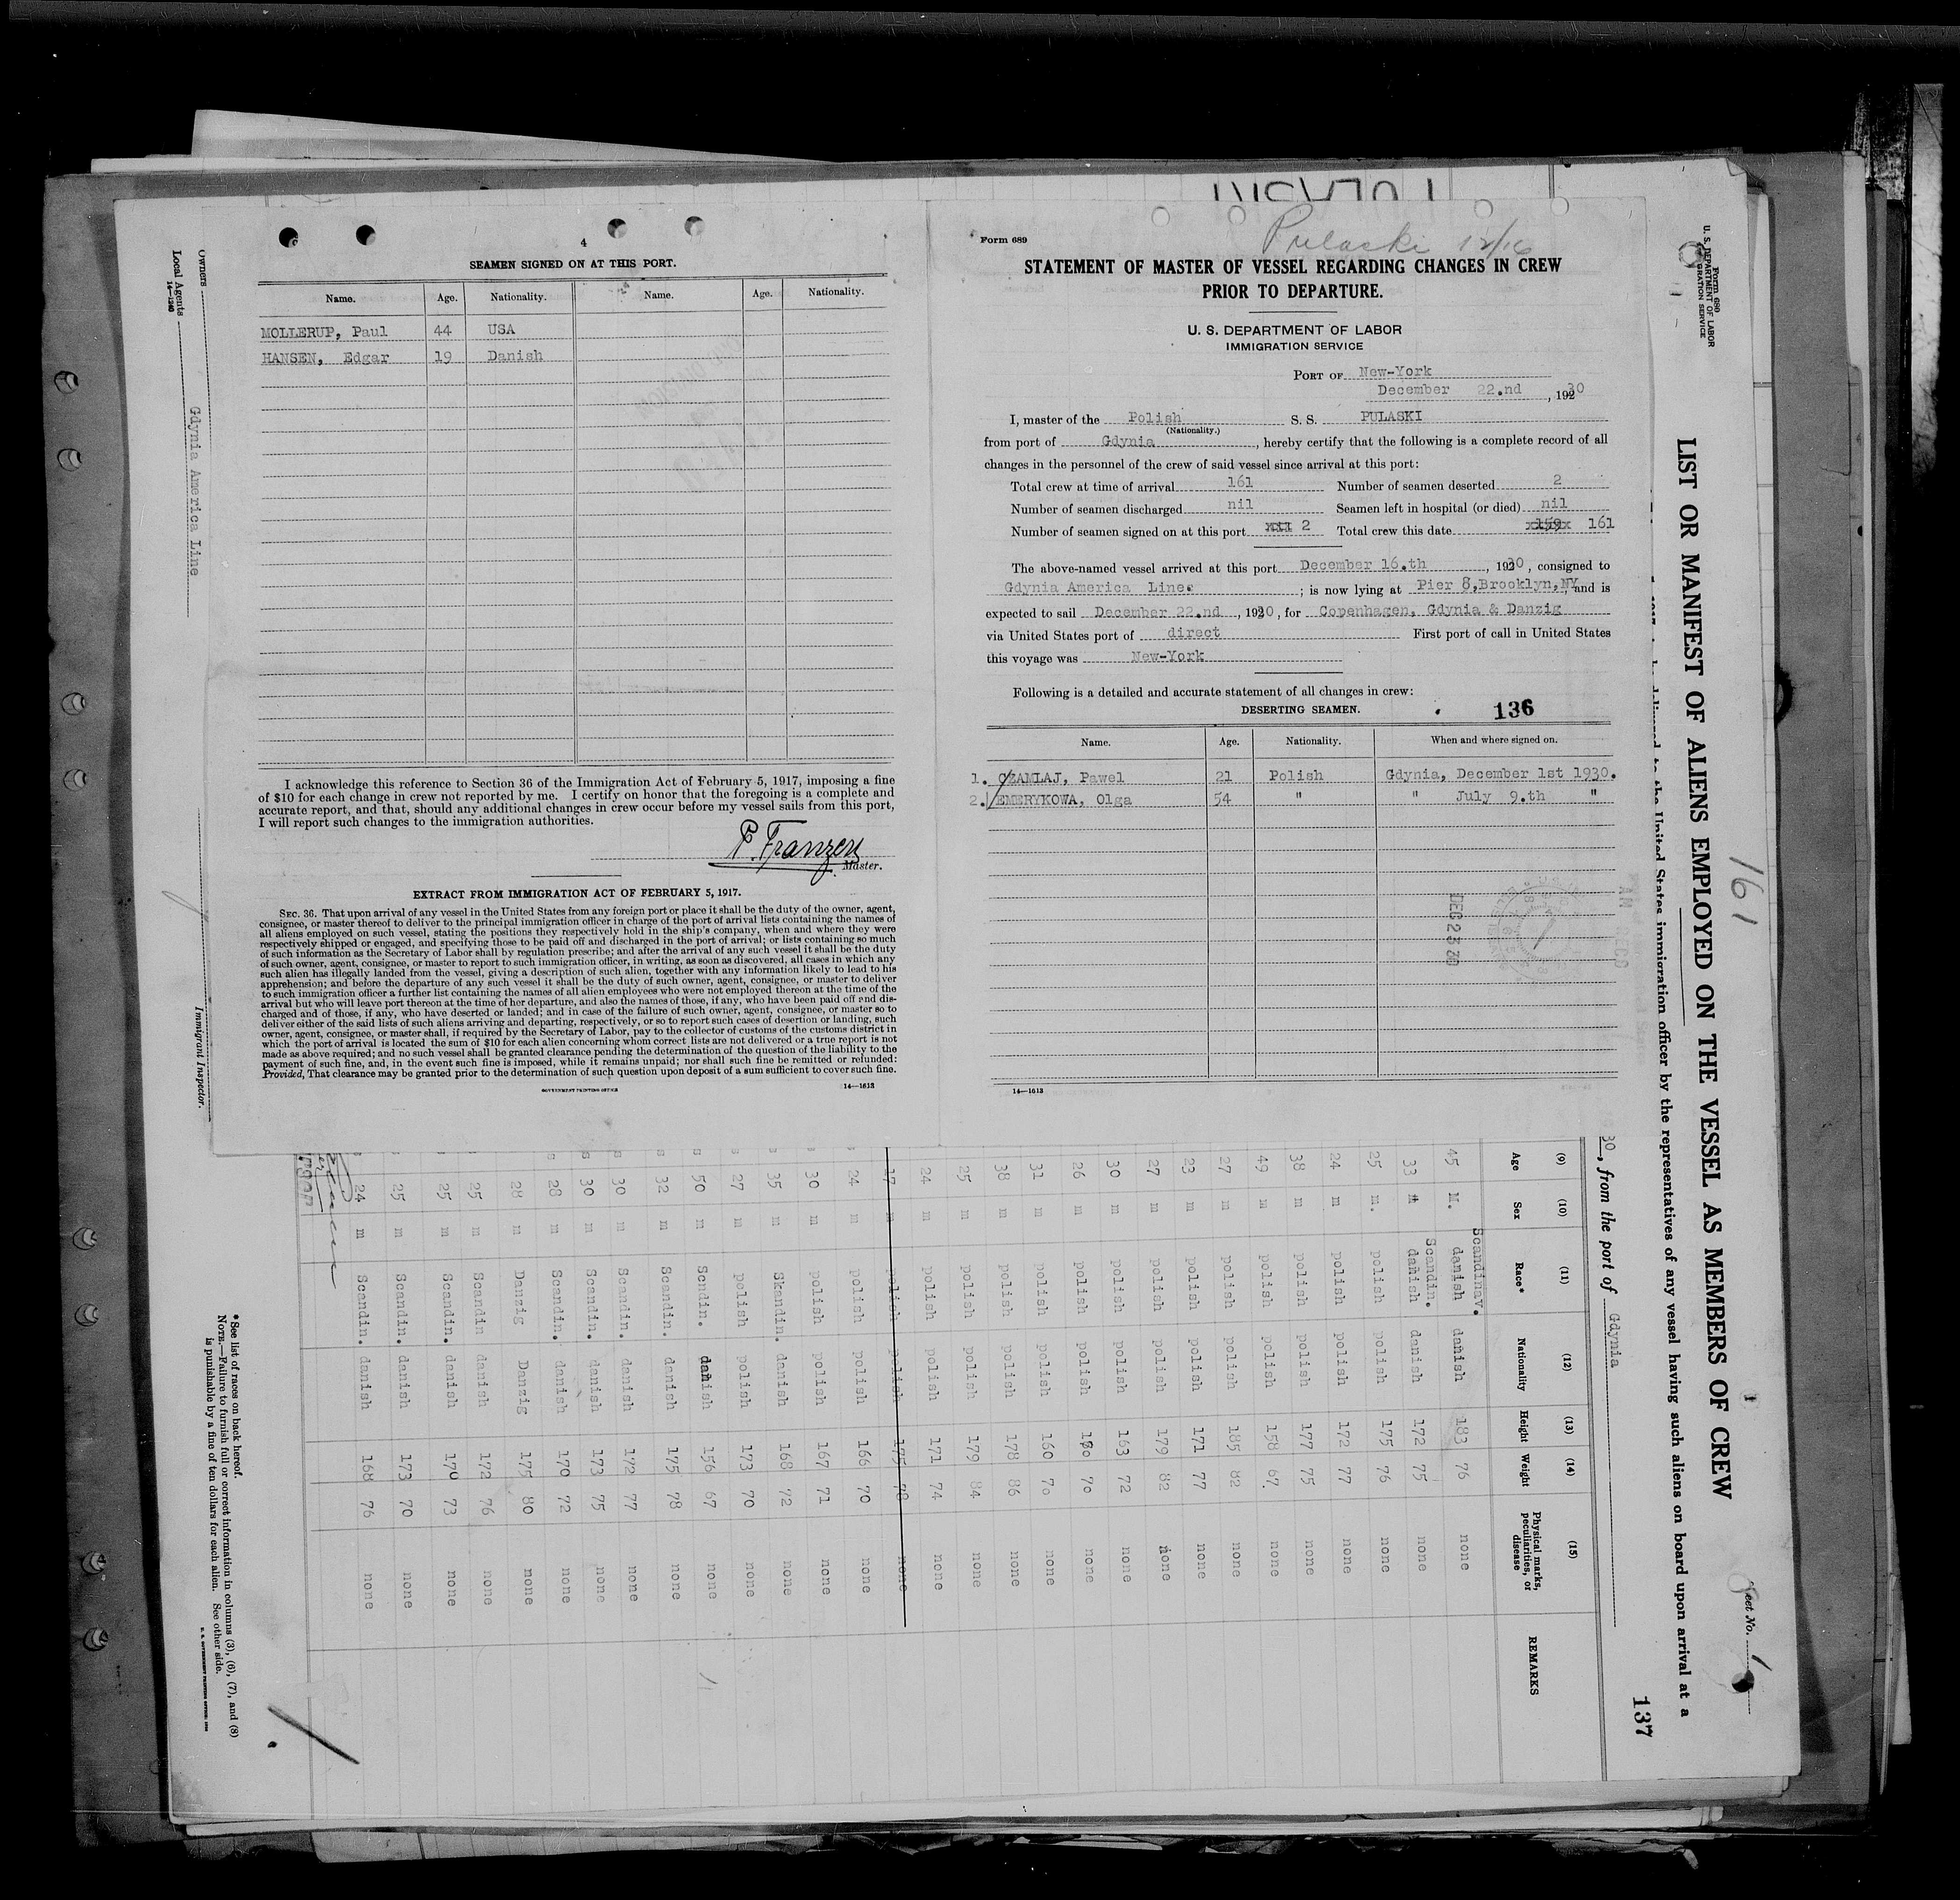 4
SEAMEN SIGNED ON AT THIS PORT.
Name. Age. Nationality. Name. Age. Nationality.
MOLLERUP, Paul 44 USA
HANSEN, Edgar 19 Danish
I acknowledge this reference to Section 36 of the Immigration Act of February 5, 1917, imposing a fine
of $10 for each change in crew not reported by me. I certify on honor that the foregoing is a complete and
accurate report, and that, should any additional changes in crew occur before my vessel sails from this port,
I will report such changes to the immigration authorities.
P. Franzen
Master.
EXTRACT FROM IMMIGRATION ACT OF FEBRUARY 5, 1917.
SEC. 36. That upon arrival of any vessel in the United States from any foreign port or place it shall be the duty of the owner, agent,
consignee, or master thereof to deliver to the principal immigration officer in charge of the port of arrival lists containing the names of
all aliens employed on such vessel, stating the positions they respectively hold in the ship's company, when and where they were
respectively shipped or engaged, and specifying those to be paid off and discharged in the port of arrival; or lists containing so much
of such information as the Secretary of Labor shall by regulation prescribe; and after the arrival of any such vessel it shall be the duty
of such owner, agent, consignee, or master to report to such immigration officer, in writing, as soon as discovered, all cases in which any
such alien has illegally landed from the vessel, giving a description of such alien, together with any information likely to lead to his
apprehension; and before the departure of any such vessel it shall be the duty of such owner, agent, consignee, or master to deliver
to such immigration officer a further list containing the names of all alien employees who were not employed thereon at the time of the
arrival but who will leave port thereon at the time of her departure, and also the names of those, if any, who have been paid off and dis-
charged and of those, if any, who have deserted or landed; and in case of the failure of such owner, agent, consignee, or master so to
deliver either of the said lists of such aliens arriving and departing, respectively, or so to report such cases of desertion or landing, such
owner, agent, consignee, or master shall, if required by the Secretary of Labor, pay to the collector of customs of the customs district in
which the port of arrival is located the sum of $10 for each alien concerning whom correct lists are not delivered or a true report is not
made as above required; and no such vessel shall be granted clearance pending the determination of the question of the liability to the
payment of such fine, and, in the event such fine is imposed, while it remains unpaid; nor shall such fine be remitted or refunded:
Provided, That clearance may be granted prior to the determination of such question upon deposit of a sum sufficient to cover such fine.
GOVERNMENT PRINTING OFFICE 14—1613
Form 689
Pulaski 12/16
STATEMENT OF MASTER OF VESSEL REGARDING CHANGES IN CREW
PRIOR TO DEPARTURE.
U. S. DEPARTMENT OF LABOR
IMMIGRATION SERVICE
PORT OF New-York
December 22.nd, 1930
I, master of the Polish S. S. PULASKI
(Nationality.)
from port of Gdynia, hereby certify that the following is a complete record of all
changes in the personnel of the crew of said vessel since arrival at this port:
Total crew at time of arrival 161 Number of seamen deserted 2
Number of seamen discharged nil Seamen left in hospital (or died) nil
Number of seamen signed on at this port 2 Total crew this date x159x 161
The above-named vessel arrived at this port December 16.th, 1930, consigned to
Gdynia America Line; is now lying at Pier 8, Brooklyn, NY and is
expected to sail December 22.nd, 1930, for Copenhagen, Gdynia & Danzig
via United States port of direct First port of call in United States
this voyage was New-York
Following is a detailed and accurate statement of all changes in crew:
DESERTING SEAMEN. 136
Name. Age. Nationality. When and where signed on.
1. CZAMLAJ, Pawel 21 Polish Gdynia, December 1st 1930.
2. EMERYKOWA, Olga 54 " " July 9.th "
14—1613
Owners
Local Agents Gdynia America Line
14—1240
Immigrant Inspector.
Form 680
U. S. DEPARTMENT OF LABOR
IGRATION SERVICE
161
LIST OR MANIFEST OF ALIENS EMPLOYED ON THE VESSEL AS MEMBERS OF CREW
eet No. 1
delivered to the United States immigration officer by the representatives of any vessel having such aliens on board upon arrival at a
30, from the port of Gdynia
137
(9) (10) (11) (12) (13) (14) (15)
Age Sex Race* Nationality Height Weight Physical marks, peculiarities, or disease REMARKS
45 M. Scandinav. danish danish 183 76 none
33 m Scandin. danish danish 172 75 none
25 m. polish polish 175 76 none
24 m polish polish 172 77 none
38 m polish polish 177 75 none
49 m polish polish 158 67. none
27 m polish polish 185 82 none
23 m polish polish 171 77 none
27 m polish polish 179 82 none
30 m polish polish 163 72 none
26 m polish polish 180 70 none
31 m polish polish 160 70 none
38 m polish polish 178 86 none
25 m polish polish 179 84 none
24 m polish polish 171 74 none
17 m polish polish 175 78 none
24 m polish polish 166 70 none
30 m polish polish 167 71 none
35 m Skandin. danish 168 72 none
27 m polish polish 173 70 none
50 m Scndin. danish 156 67 none
32 m Scandin. danish 175 78 none
30 m Scandin. danish 172 77 none
30 m Scandin. danish 173 75 none
28 m Scandin. danish 170 72 none
28 m Danzig Danzig 175 80 none
25 m Scandin danish 172 76 none
25 m Scandin. danish 170 73 none
25 m Scandin. danish 173 70 none
24 m Scandin. danish 168 76 none
*See list of races on back hereof.
NOTE.—Failure to furnish full or correct information in columns (3), (6), (7), and (8)
is punishable by a fine of ten dollars for each alien. See other side.